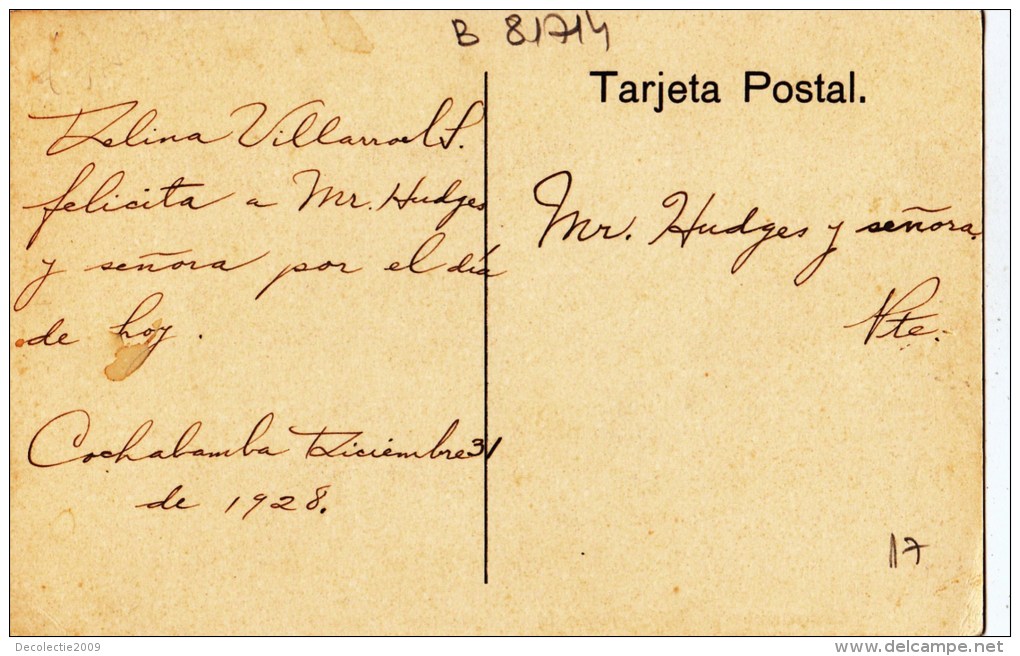 B 81714
Tarjeta Postal.
Delina Villarroel S.
felicita a Mr. Hudges
y señora por el día
de hoy.
Cochabamba Diciembre 31
de 1928.
Mr. Hudges y señora.
Pte.
17
Decolectie2009
www.delcampe.net